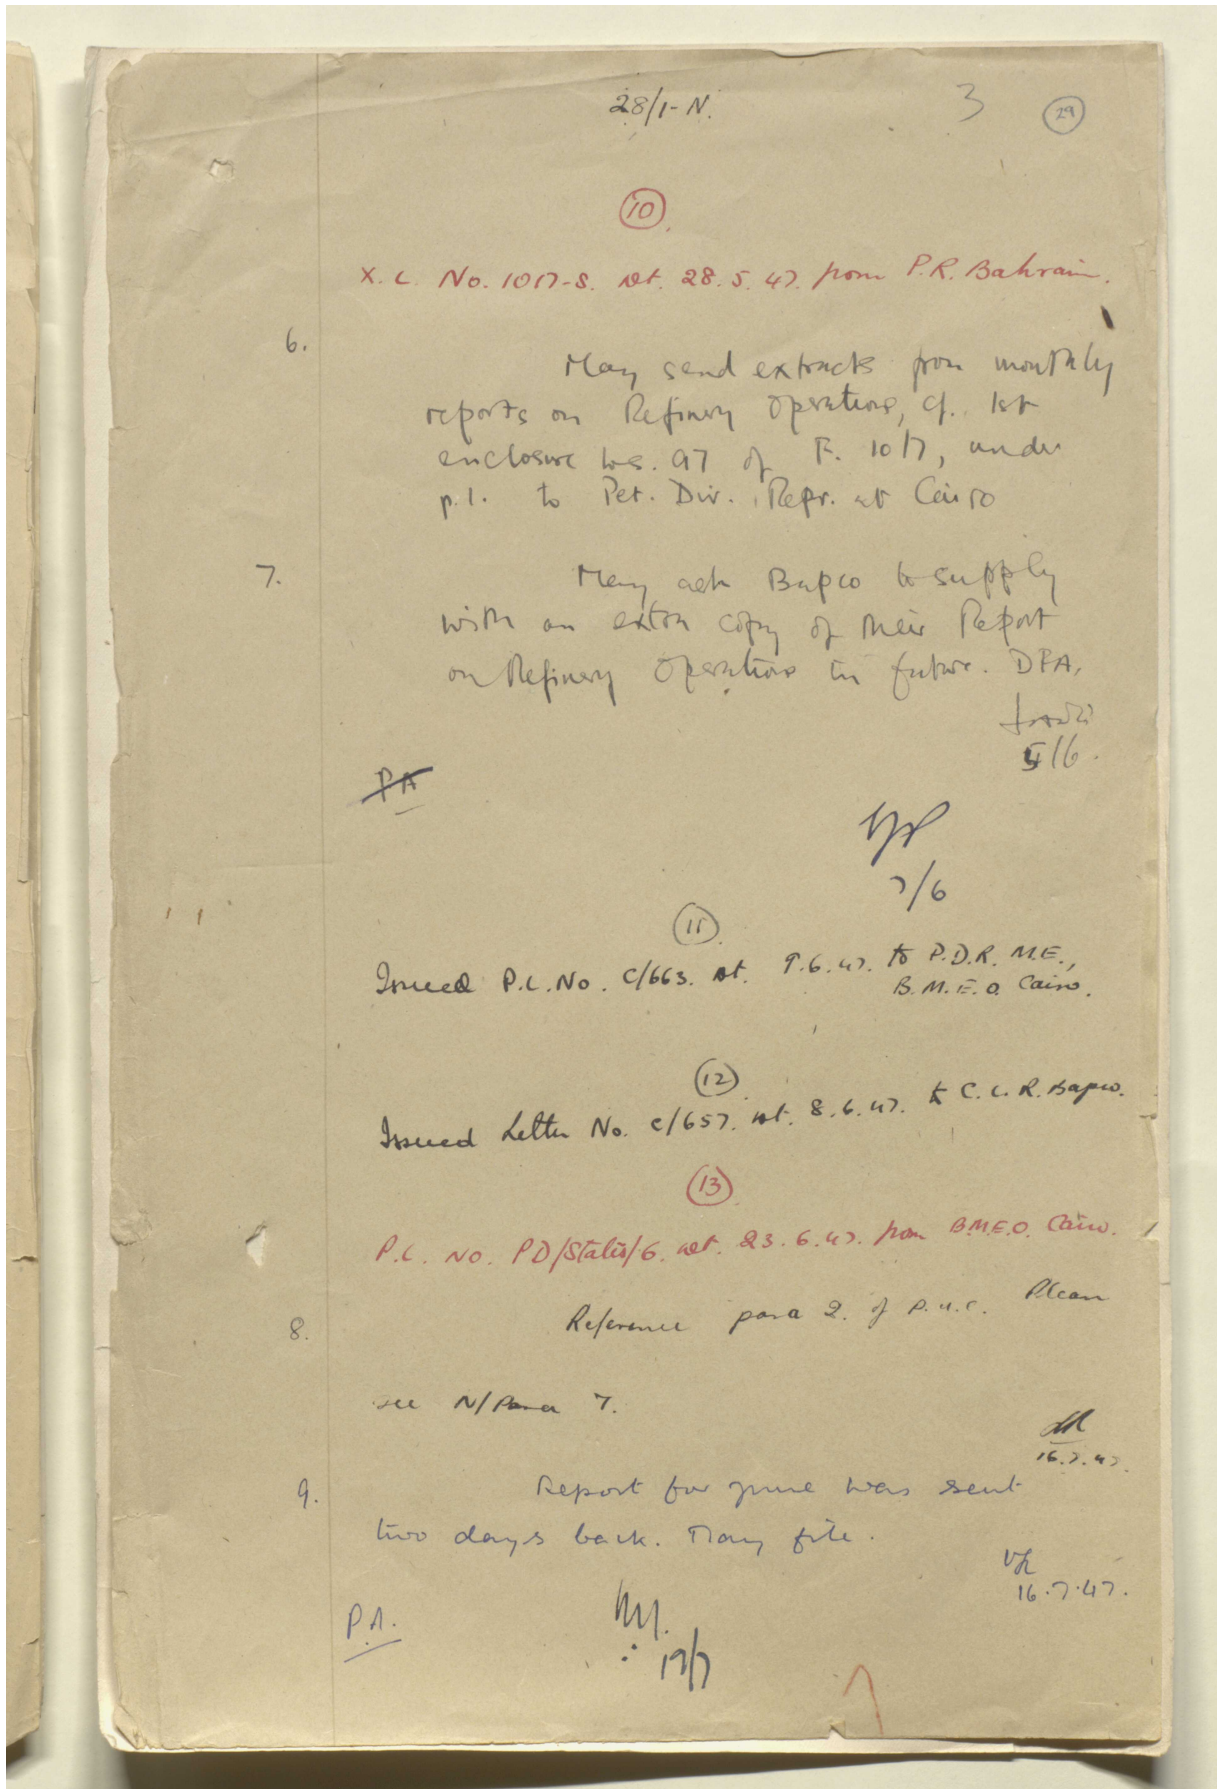 28/1-N. 3 29
10
X. L. No. 1017-S. dt. 28.5.47. from P.R. Bahrain.
6. May send extracts from monthly
reports on Refinery Operations, cf. 1st
enclosure to s. 97 of F. 10/7, under
p.l. to Pet. Div. Repr. at Cairo
7. May ask Bapco to supply
with an extra copy of their Report
on Refinery Operations in future. DFA,
5/6.
PA
7/6
11
Issued P.L. No. C/663. dt. 9.6.47. to P.D.R. M.E.,
B.M.E.O. Cairo.
12
Issued Letter No. C/657. dt. 8.6.47. to C.L.R. Bapco.
13
P.L. No. PD/Statis/6. dt. 23.6.47. from B.M.E.O. Cairo.
8. Reference para 2. of P.U.C. Please
see N/Para 7.
16.7.47.
9. Report for June was sent
two days back. May file.
16.7.47.
P.A.
17/7